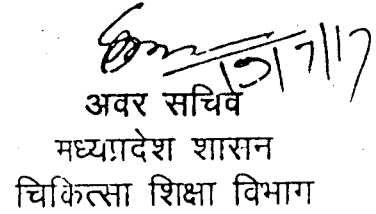 19/7/17
अवर सचिव
मध्यप्रदेश शासन
चिकित्सा शिक्षा विभाग